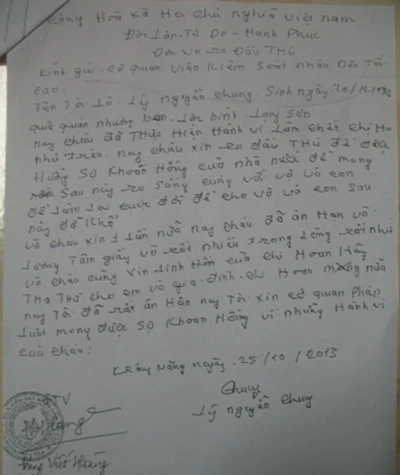 Cộng Hoà xã Ha chủ nghĩa việt nam
Độc Lập-Tự Do-Hạnh Phúc
Đơn Xin-Ra Đầu Thú
Kính gửi-cơ quan viện kiểm soát nhân Dân Tối
cao.
Tên Tôi Là. Lý nguyễn chung Sinh ngày 20/12/19
quê quán Lộc bình. Lạng Sơn
nay cháu đã Thực Hiện Hành vi Làm chết chị Ha
như Trên. nay cháu xin ra đầu THú để được
Hưởng Sự Khoan Hồng của nhà nước để mong
Sau này ra sống cùng với vợ và con
để Làm Lại cuộc đời để cho vợ và con sau
này đỡ Khổ
và cháu xin 1 Lần nữa nay cháu đã ân Hạn vô
Lương Tâm giầy vò rất nhiều trong Lòng rất nhiều
và cháu cũng xin Linh Hồn của chị Hoan Hãy
THa THứ cho em và gia-đình-chị Hoan mong nữa
nay Tôi đã rất ân Hân nay Tôi xin cơ quan Pháp
Luật mong được Sự Khoan Hồng vì những Hành vi
của cháu:
KRông Năng ngày. 25/10/2013
ĐTV
Chung
Lý nguyễn chung
Hoàng